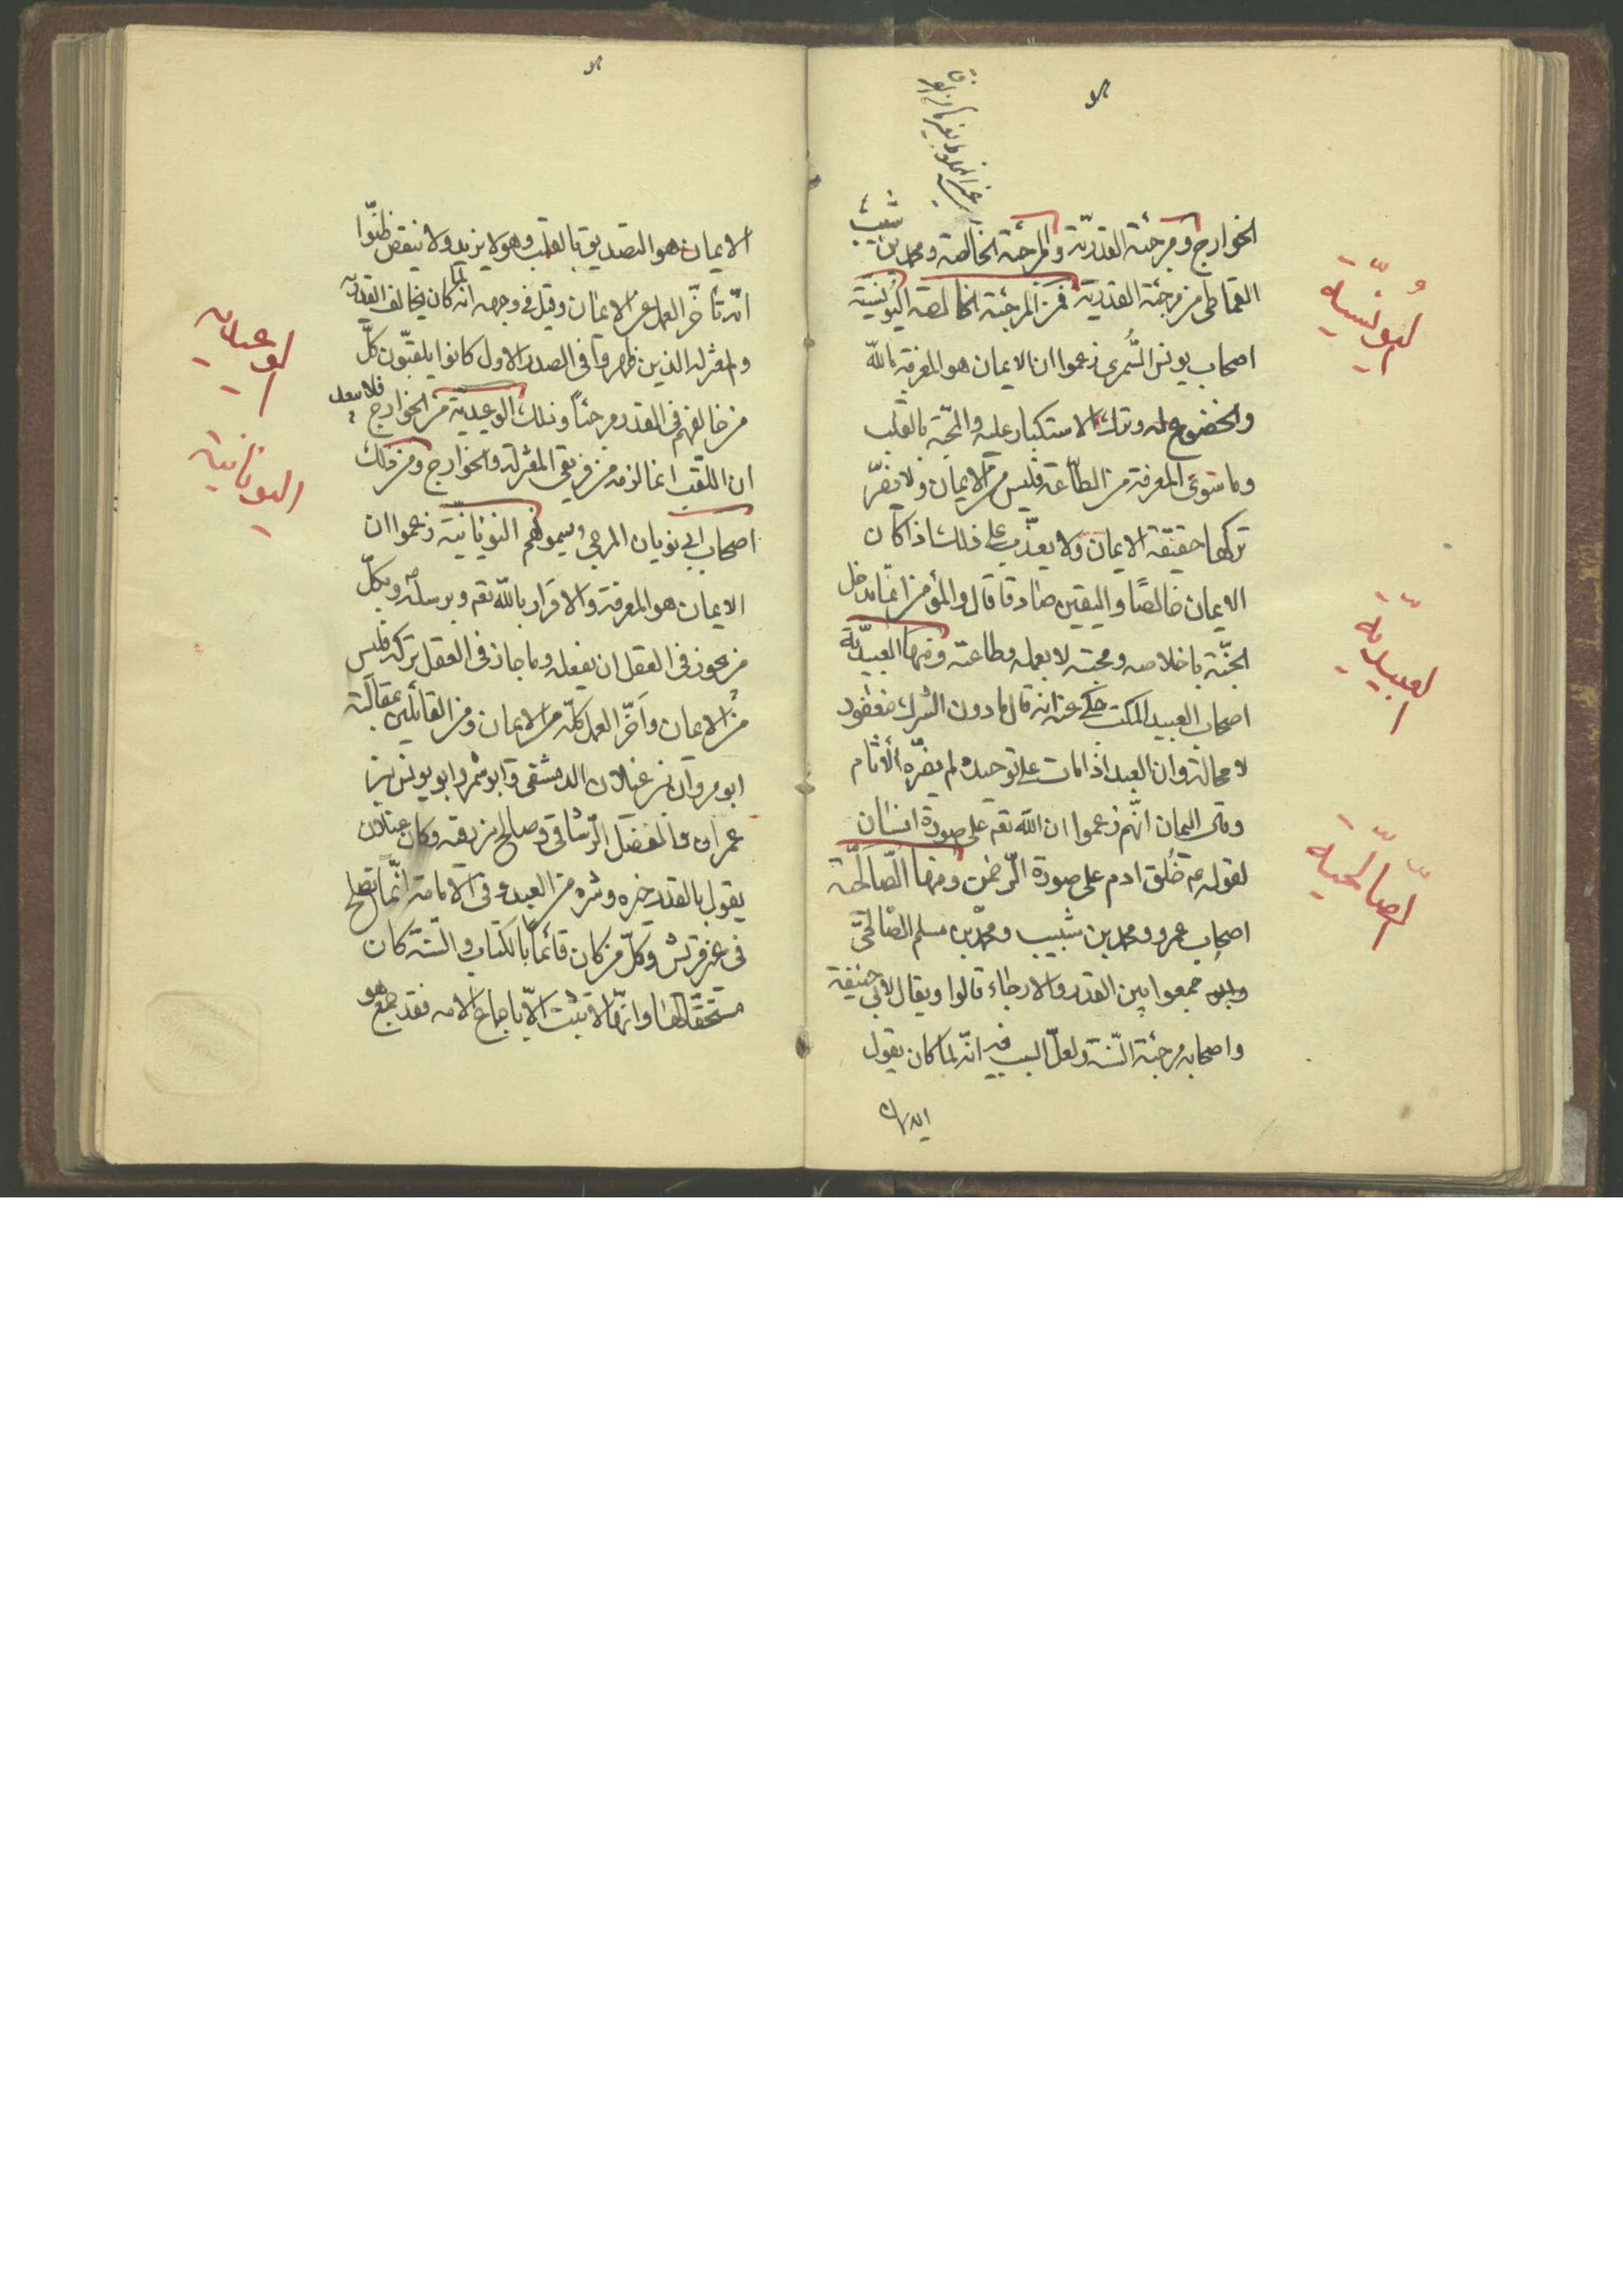 الخوارج ومرجئة القدريّة والمرجئة الخالصة ومحمد بن شبيب
القماطى من مرجئة القدرية فمن المرجئة الخالصة اليونسيّة
اصحاب يونس السُّمرى زعموا ان الايمان هو المعرفة بالله
والخضوع له وترك الاستكبار عليه والمحبّة بالقلب
وما سوى المعرفة من الطّاعة فليس من الايمان ولا يضرّ
تركها حقيقة الايمان ولا يعذّب على ذلك اذا كان
الايمان خالصًا واليقين صادقا قال والمؤمن انّما يدخل
الجنّة باخلاصه ومحبته لا بعمله وطاعته ومنها العبيديّة
اصحاب العبيد المكتب حكى عنه انه قال ما دون الشرك مغفود
لا محالة وان العبد اذا مات على توحيده لم يضرّه الاثام
وحكى اليمان انّهم زعموا ان الله تعم على صورة انسان
لقوله عم خُلق ادم على صورة الرّحمن ومنها الصّالحيّة
اصحاب عمرو ومحمد بن شبيب ومحمّد بن مسلم الصّالحىّ
جمعوا بين القدر والارجاء قالوا ويقال لابى حنيفة
واصحابه مرجئة السّنة ولعلّ السبب فيه انّه لما كان يقول
الايمان
اليُونسيّة
العبيديّة
الصّالحيّة
الايمان هو التصديق بالقلب وهو لا يزيد ولا ينقص ظنّوا
انّه تأخّر العمل عن الايمان وقيل فى وجهه انّه لما كان يخالف القدريّة
والمعتزلة الذين ظهروا فى الصدر الاول كانوا يلقّبون كلّ
من خالفهم فى القدر مرجئاً وكذلك الوعيدية من الخوارج فلا يبعد
ان اللقب انما لزمه من فريقى المعتزلة والخوارج ومن ذلك
اصحاب ابى نوبان المرجى ويسمونهم النوبانيّة زعموا ان
الايمان هو المعرفة والاقرار بالله تعم وبرسله وبكلّ
من يجوز فى العقل ان يفعله وما جاز فى العقل تركه فليس
من الايمان واَخّر العمل كلّه من الايمان ومن القائلين بمقالته
ابو مروان بن غيلان الدمشقى وابو شمر وابو يونس بن
عمران والفضل الرّشاقى وصالح بن رقبه وكان غيلان
يقول بالقدر خيره وشره من العبد وفى الامامة انّما تصلح
فى غير قريش وكلّ من كان قائماً بالكتاب والسّنة كان
مستحقّا لها وانّها لا تثبت الاّ باجماع الامه فقد جمع هو
الوعيديه
اليونانية